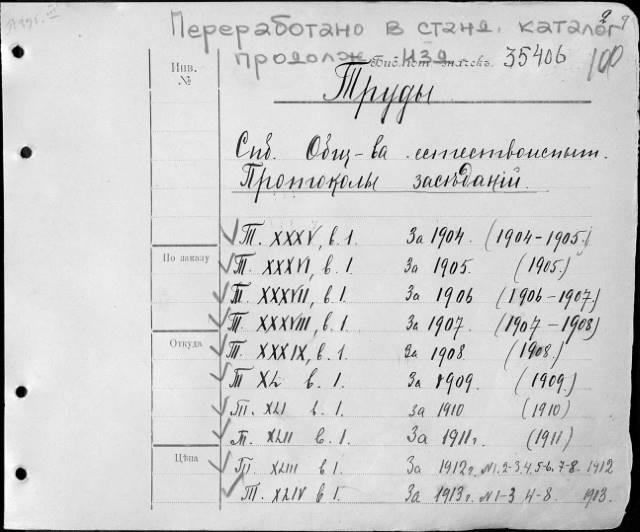 Переработано в станд. каталог
продолж. изд.
Библіот. значекъ. 35406
100
Инв.
№
Труды
Спб. Общ-ва естествоиспыт.
Протоколы засѣданій.
Т. XXXV, в. 1. За 1904. (1904-1905.)
По заказу
Т. XXXVI, в. 1. За 1905. (1905.)
Т. XXXVII, в. 1. За 1906 (1906-1907.)
Т. XXXVIII, в. 1. За 1907. (1907-1908)
Откуда
Т. XXXIX, в. 1. За 1908. (1908.)
Т XL в. 1. За 1909. (1909.)
Т. XLI в. 1. За 1910 (1910)
Т. XLII в. 1. За 1911г. (1911)
Цѣна
Т. XLIII в 1. За 1912г. №1.2-3.4.5-6.7-8. 1912
Т. XLIV в 1. За 1913г. №1-3 4-8. 1913.